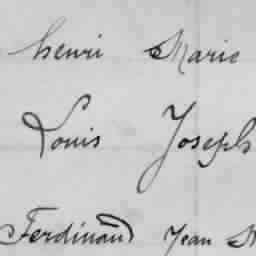 henri Marie
Louis Joseph
Ferdinand Jean